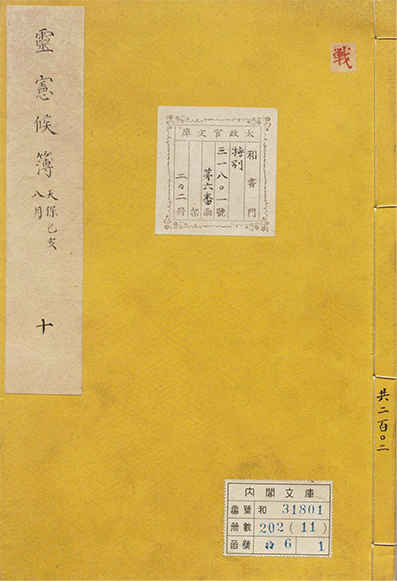 靈憲候簿
天保己亥
八月
十
戦
太政官文庫
和書門
特別
三一八〇一號
第六番函
架
三〇二冊
共二百〇二
内閣文庫
番號 和 31801
冊數 202(11)
函號 特6 1